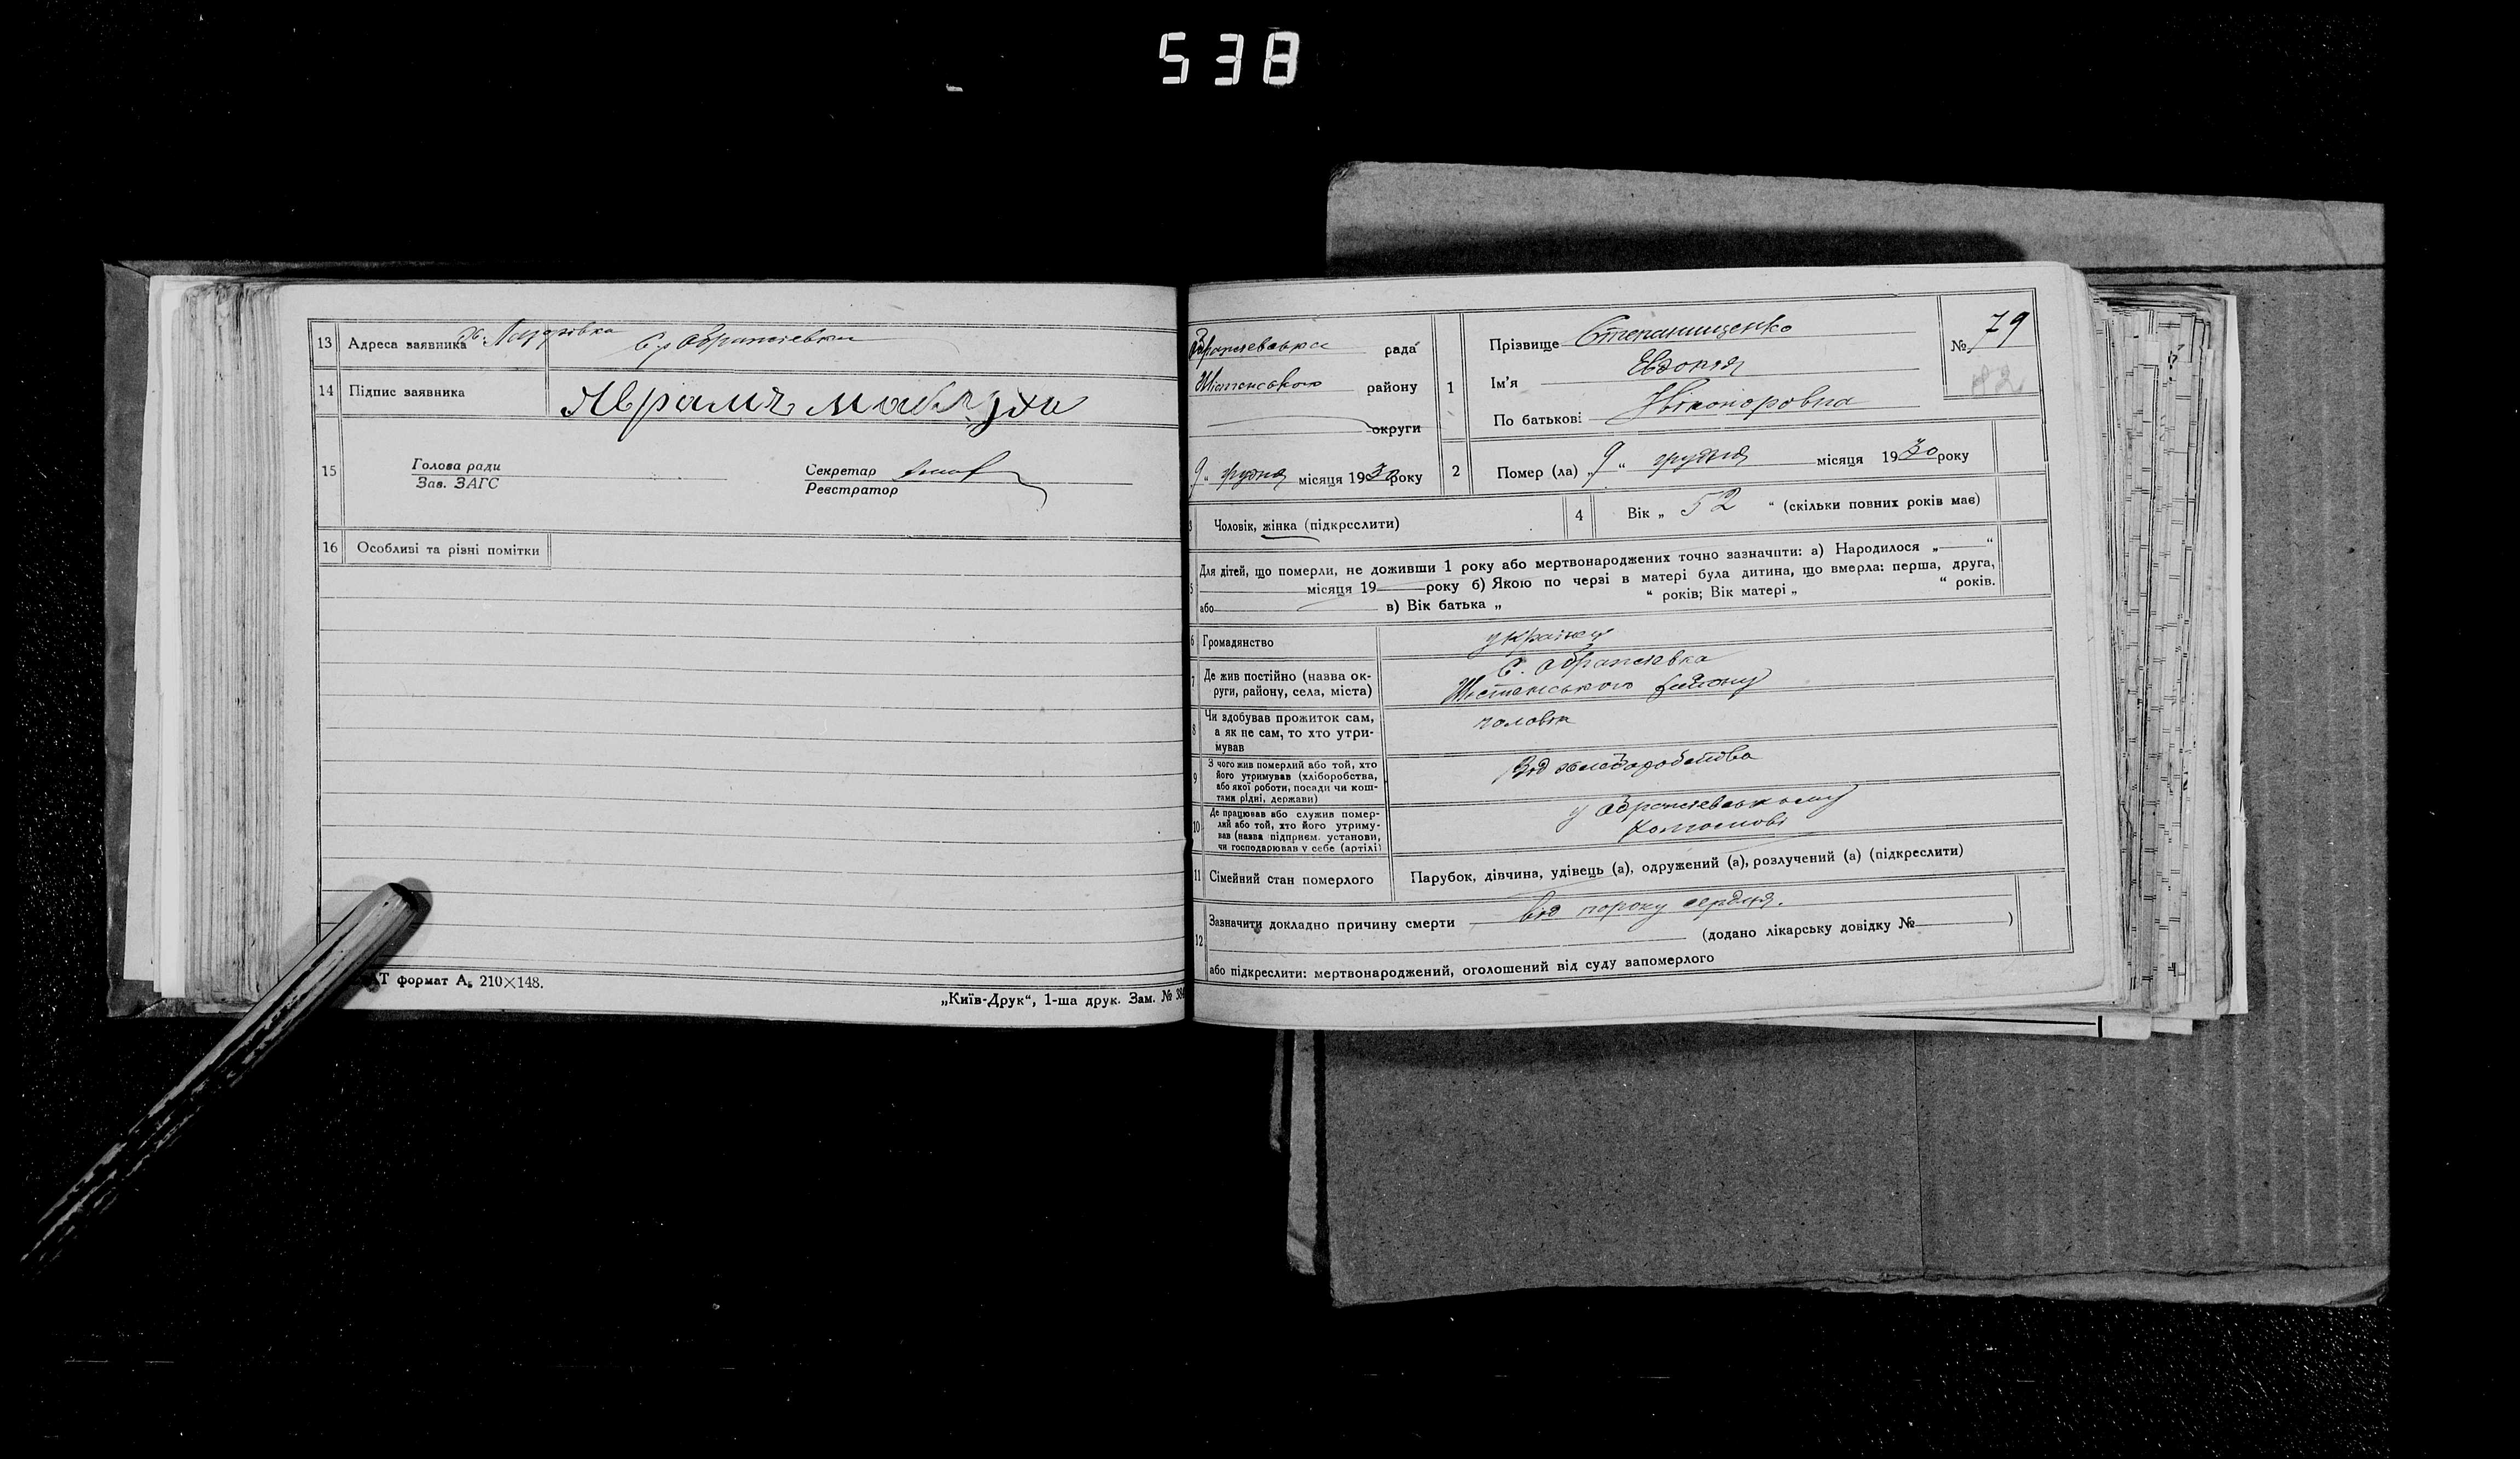 538
13 Адреса заявника х. Лазорівка
14 Підпис заявника Аврамъ
15 Голова ради
Зав. ЗАГС
Секретар
Реєстратор
16 Особливі та різні помітки
АТ формат А₅ 210×148.
„Київ-Друк“, 1-ша друк. Зам. №
рада
району
округи
9 “ грудня місяця 1930 року
1 Прізвище Степанищенко
Ім’я Евдокія
По батькові Ніконоровна
№ 79
82
2 Помер (ла) „ 9 “ грудня місяця 1930 року
3 Чоловік, жінка (підкреслити)
4 Вік „ 52 “ (скільки повних років має)
5 Для дітей, що померли, не доживши 1 року або мертвонароджених точно зазначити: а) Народилося „ “
місяця 19 року б) Якою по черзі в матері була дитина, що вмерла: перша, друга,
або в) Вік батька „ “ років; Вік матері „ “ років.
6 Громадянство українец
7 Де жив постійно (назва ок-
руги, району, села, міста)
району
8 Чи здобував прожиток сам,
а як не сам, то хто утри-
мував
чоловік
9 З чого жив померлий або той, хто
його утримував (хліборобства,
або якої роботи, посади чи кош-
тами рідні, держави)
Від хліборобства
10 Де працював або служив помер-
лий або той, хто його утриму-
вав (назва підприєм. установи,
чи господарював у себе (артілі)
у
11 Сімейний стан померлого Парубок, дівчина, удівець (а), одружений (а), розлучений (а) (підкреслити)
12 Зазначити докладно причину смерти від пороку сердця.
(додано лікарську довідку № )
або підкреслити: мертвонароджений, оголошений від суду вапомерлого